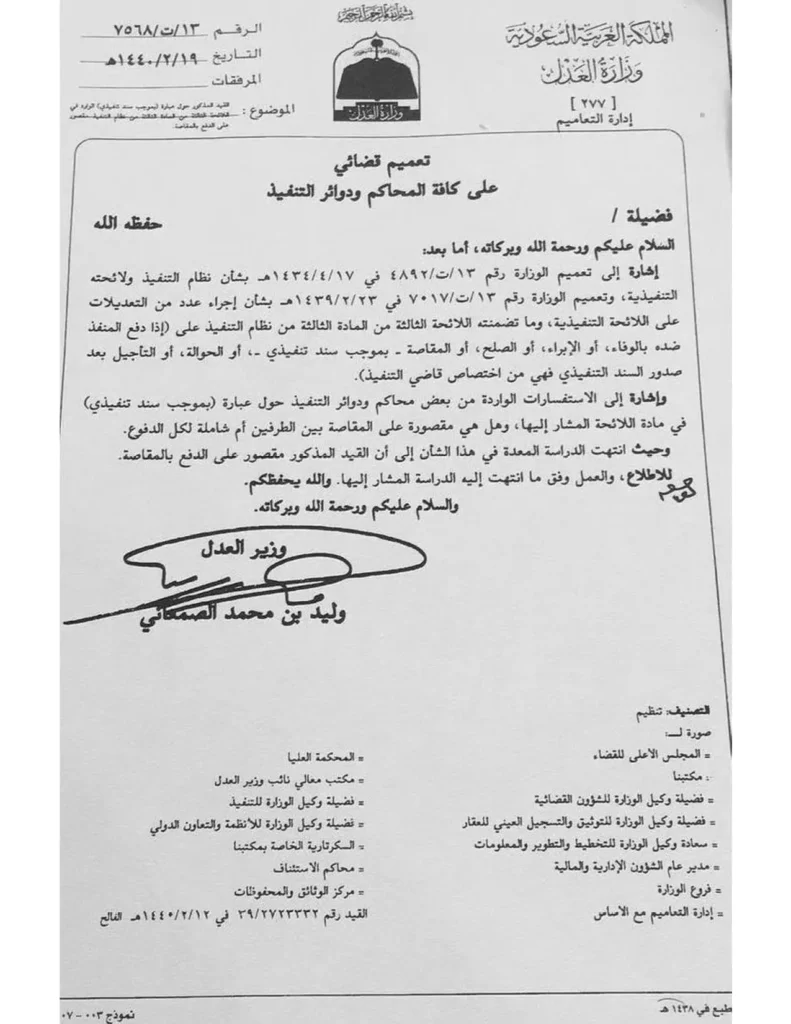 بسم الله الرحمن الرحيم
المملكة العربية السعودية
وزارة العدل
[ ٢٧٧ ]
إدارة التعاميم
وزارة العدل
الرقم ١٣/ت/٧٥٦٨
التاريخ ١٤٤٠/٢/١٩هـ
المرفقات
الموضوع : القيد المذكور حول عبارة (بموجب سند تنفيذي) الوارد في
اللائحة الثالثة من المادة الثالثة من نظام التنفيذ مقصور
على الدفع بالمقاصة.
تعميم قضائي
على كافة المحاكم ودوائر التنفيذ
فضيلة / حفظه الله
السلام عليكم ورحمة الله وبركاته، أما بعد:
إشارة إلى تعميم الوزارة رقم ١٣/ت/٤٨٩٢ في ١٤٣٤/٤/١٧هـ بشأن نظام التنفيذ ولائحته
التنفيذية، وتعميم الوزارة رقم ١٣/ت/٧٠١٧ في ١٤٣٩/٢/٢٣هـ بشأن إجراء عدد من التعديلات
على اللائحة التنفيذية، وما تضمنته اللائحة الثالثة من المادة الثالثة من نظام التنفيذ على (إذا دفع المنفذ
ضده بالوفاء، أو الإبراء، أو الصلح، أو المقاصة ـ بموجب سند تنفيذي ـ، أو الحوالة، أو التأجيل بعد
صدور السند التنفيذي فهي من اختصاص قاضي التنفيذ).
وإشارة إلى الاستفسارات الواردة من بعض محاكم ودوائر التنفيذ حول عبارة (بموجب سند تنفيذي)
في مادة اللائحة المشار إليها، وهل هي مقصورة على المقاصة بين الطرفين أم شاملة لكل الدفوع.
وحيث انتهت الدراسة المعدة في هذا الشأن إلى أن القيد المذكور مقصور على الدفع بالمقاصة.
للاطلاع، والعمل وفق ما انتهت إليه الدراسة المشار إليها. والله يحفظكم.
والسلام عليكم ورحمة الله وبركاته.
وزير العدل
وليد بن محمد الصمعاني
التصنيف: تنظيم
صورة لـــ:
= المجلس الأعلى للقضاء
: مكتبنا
= فضيلة وكيل الوزارة للشؤون القضائية
= فضيلة وكيل الوزارة للتوثيق والتسجيل العيني للعقار
= سعادة وكيل الوزارة للتخطيط والتطوير والمعلومات
= مدير عام الشؤون الإدارية والمالية
= فروع الوزارة
= إدارة التعاميم مع الأساس
= المحكمة العليا
= مكتب معالي نائب وزير العدل
= فضيلة وكيل الوزارة للتنفيذ
= فضيلة وكيل الوزارة للأنظمة والتعاون الدولي
= السكرتارية الخاصة بمكتبنا
= محاكم الاستئناف
= مركز الوثائق والمحفوظات
القيد رقم ٣٩/٢٧٢٣٣٣٢ في ١٤٤٠/٢/١٢هـ الفالح
طبع في ١٤٣٨ هـ
نموذج ٠٠٣ - ٠٧